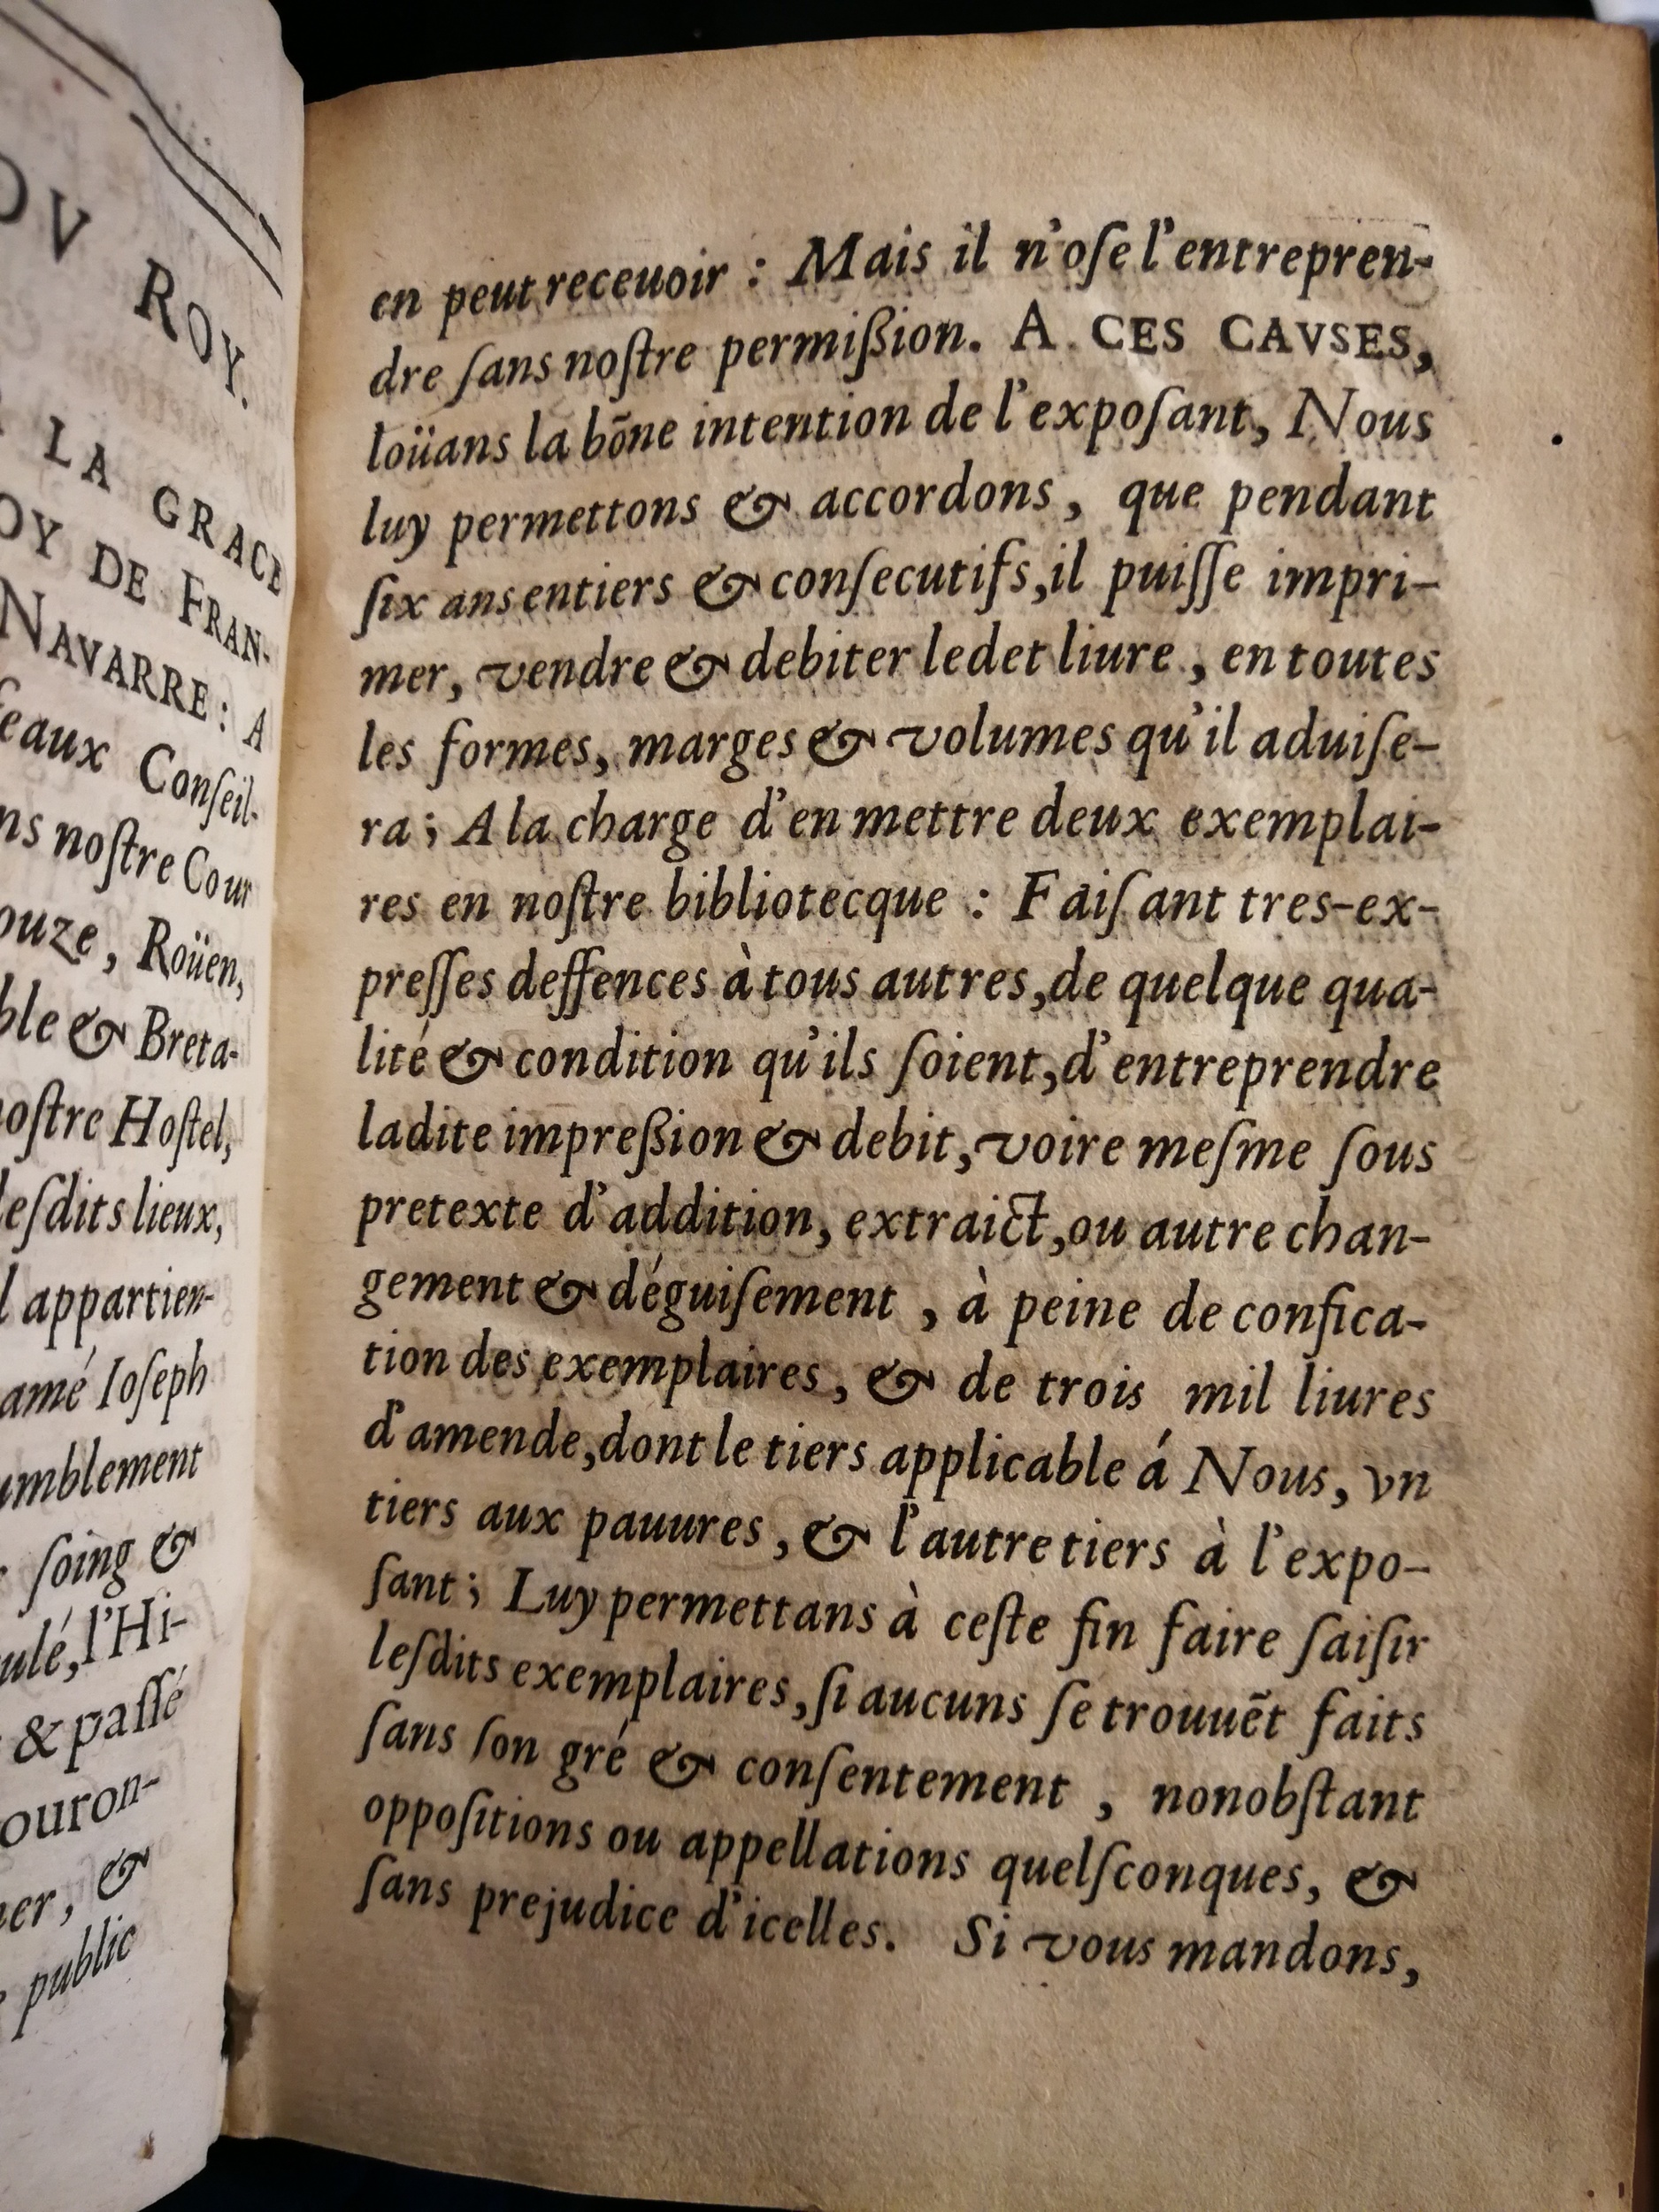 OV ROY.
LA GRACE
OY DE FRAN-
NAVARRE: A
feaux Conſeil-
ns noſtre Cour
ouze, Roüen,
ble & Breta-
noſtre Hoſtel,
deſdits lieux,
l appartien-
amé Ioſeph
umblement
ſoing &
ulé, l'Hi-
& paſſé
ouron-
er, &
public
en peut receuoir : Mais il n'oſe l'entrepren-
dre ſans noſtre permißion. A CES CAVSES,
loüans la bōne intention de l'expoſant, Nous
luy permettons & accordons, que pendant
ſix ans entiers & conſecutifs, il puiſſe impri-
mer, vendre & debiter ledet liure, en toutes
les formes, marges & volumes qu'il aduiſe-
ra; A la charge d'en mettre deux exemplai-
res en noſtre bibliotecque : Faiſant tres-ex-
preſſes deffences à tous autres, de quelque qua-
lité & condition qu'ils ſoient, d'entreprendre
ladite impreßion & debit, voire meſme ſous
pretexte d'addition, extraict, ou autre chan-
gement & déguiſement, à peine de confica-
tion des exemplaires, & de trois mil liures
d'amende, dont le tiers applicable á Nous, vn
tiers aux pauures, & l'autre tiers à l'expo-
ſant; Luy permettans à ceſte fin faire ſaiſir
leſdits exemplaires, ſi aucuns ſe trouuēt faits
ſans ſon gré & conſentement, nonobſtant
oppoſitions ou appellations quelſconques, &
ſans prejudice d'icelles. Si vous mandons,